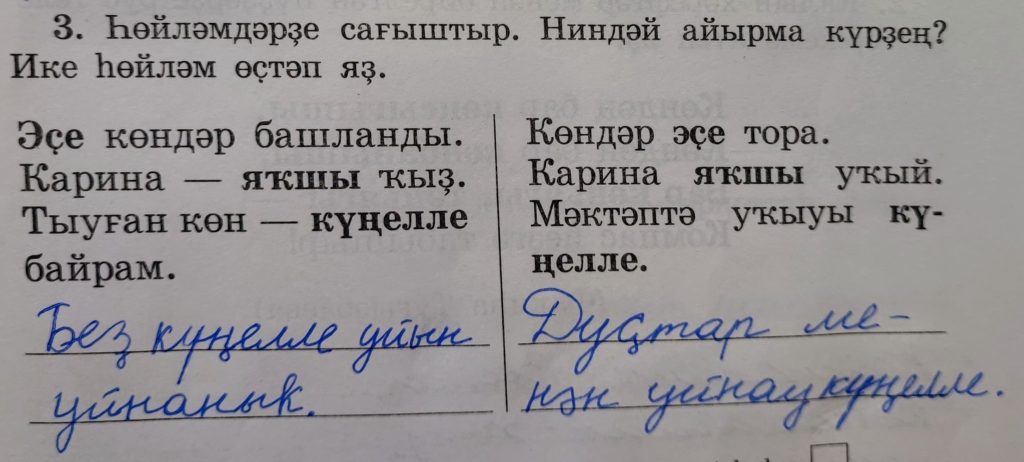 3. Һөйләмдәрҙе сағыштыр. Ниндәй айырма күрҙең?
Ике һөйләм өҫтәп яҙ.
Эҫе көндәр башланды.
Карина — яҡшы ҡыҙ.
Тыуған көн — күңелле
байрам.
Беҙ күңелле уйын
уйнаныҡ.
Көндәр эҫе тора.
Карина яҡшы уҡый.
Мәктәптә уҡыуы кү-
ңелле.
Дуҫтар ме-
нән уйнау күңелле.